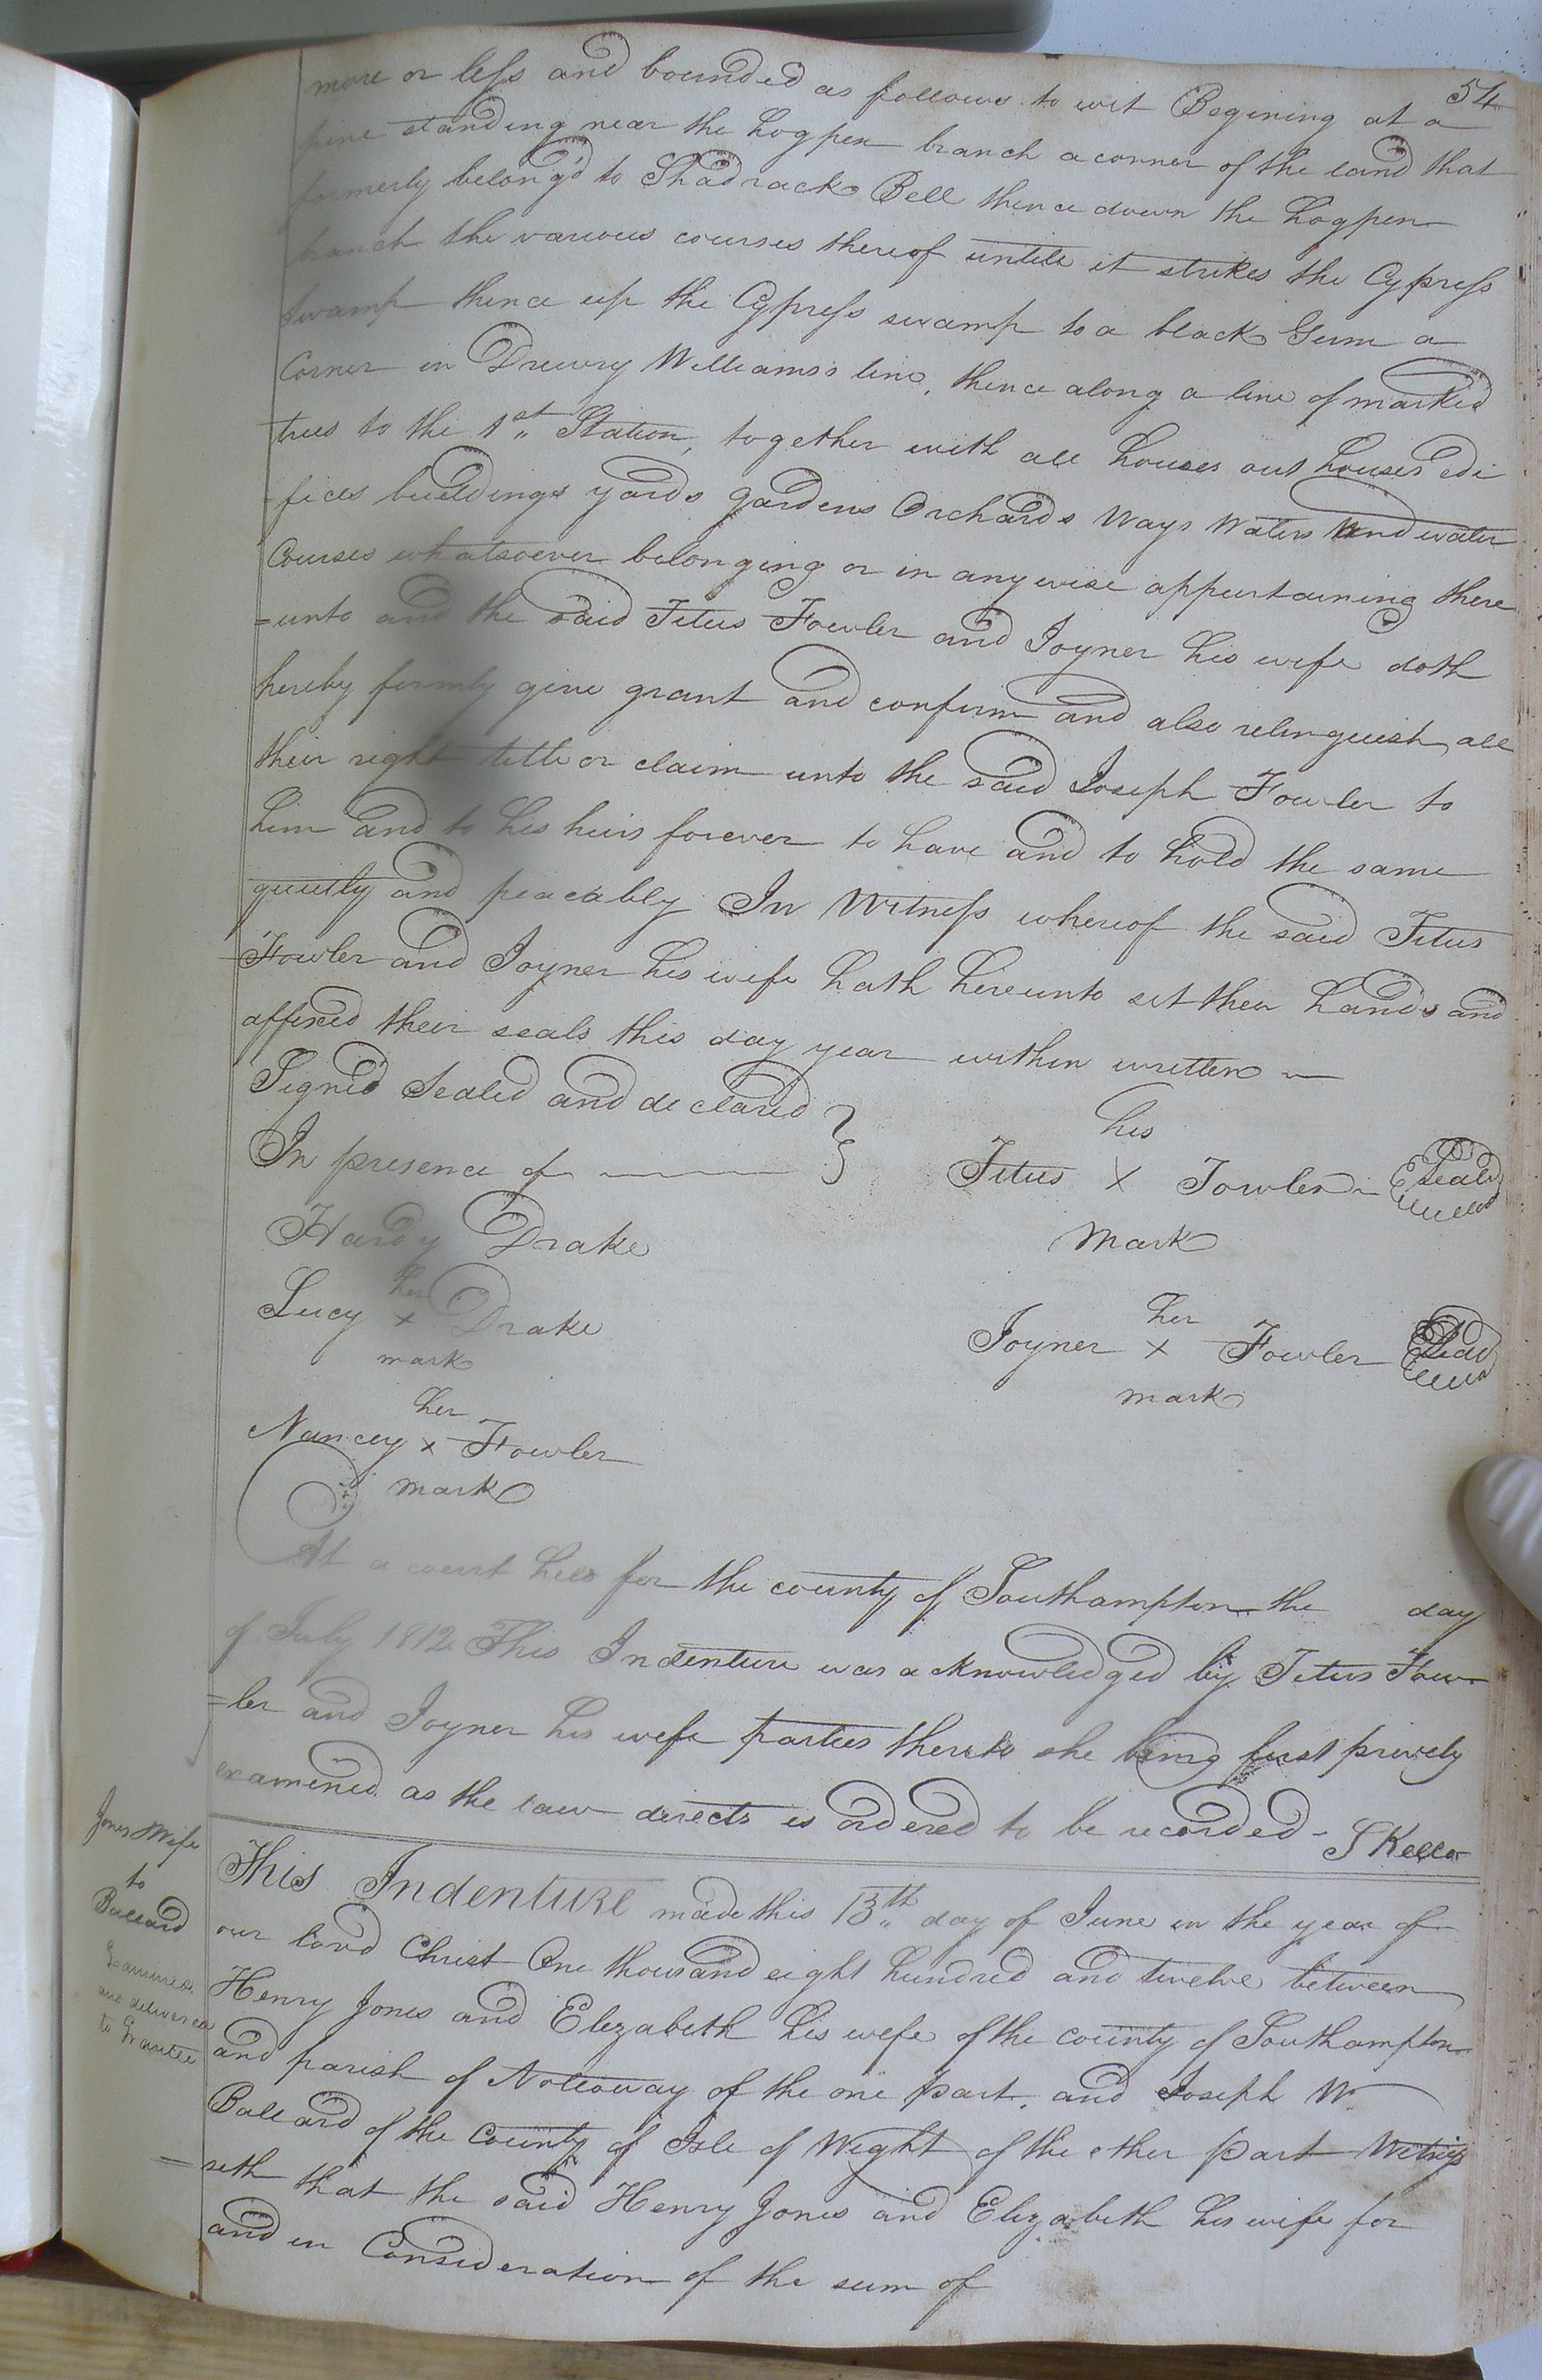 54
more or less and bounded as follows to wit Begining at a
pine standing near the hogpen branch a corner of the land that
formerly belong'd to Shadrack Bell thence down the hogpen
branch the various courses thereof untill it strikes the Cypress
swamp thence up the Cypress swamp to a black Gum a
Corner in Drewry Williams's line, thence along a line of marked
trees to the 1st Station, together with all houses out houses edi
-fices buildings yards gardens Orchards Ways Waters And water
Courses whatsoever belonging or in any wise appurtaining there
=unto and the said Titus Fowler and Joyner his wife doth
hereby firmly give grant and confirm and also relinquish all
their right title or claim unto the said Joseph Fowler to
him and to his heirs forever to have and to hold the same
quietly and peaceably In Witness whereof the said Titus
Fowler and Joyner his wife hath hereunto set their hands and
affixed their seals this day year within written
Signed Sealed and declared }
In presence of
his
Titus X Fowler Seal
mark
Hardy Drake
her
Lucy x Drake
mark
her
Joyner x Fowler Seal
mark
her
Nancey x Fowler
mark
At a court held for the county of Southampton the day
of July 1812 This Indenture was acknowledged by Titus Fow-
=ler and Joyner his wife parties thereto she being first privily
examined as the law directs is ordered to be recorded - S Kello
Jones & Wife
to
Ballard
Examined
and delivered
to Grantee
This Indenture made this 13th day of June in the year of
our lord Christ One thousand eight hundred and twelve between
Henry Jones and Elizabeth his wife of the county of Southampton
and parish of Nottoway of the one part, and Joseph W.
Ballard of the County of Isle of Wight of the other part Witnes
=seth that the said Henry Jones and Elizabeth his wife for
and in Consideration of the sum of